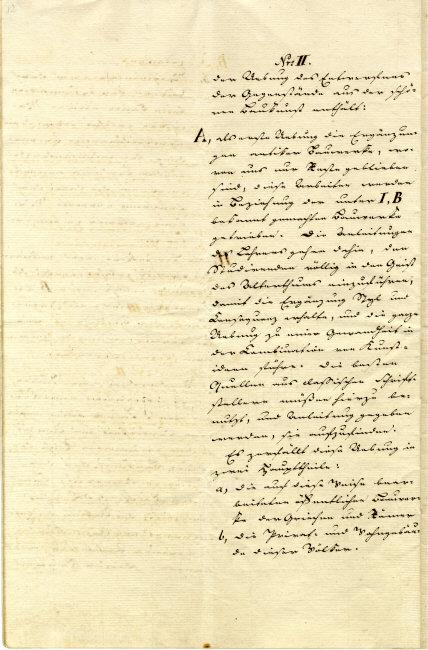 Nro: II.
der Uebung des Entwerfens
der Gegenstände aus der schö-
nen Baukunst enthält:
A, als erste Uebung die Ergänzun-
gen antiker Bauwerke, wo-
von uns nur Reste geblieben
sind, diese Arbeiten werden
in Beziehung der unter I, B
bekannt gemachten Bauwerke
getrieben. Die Anleitungen
des Lehrers gehen dahin, den
Studierenden völlig in den Geist
des Alterthums einzuführen,
damit die Ergänzung Styl und
Consequenz erhalte, und die ganze
Uebung zu einer Gewandheit in
der Combination von Kunst-
ideen führe. Die besten
Quellen aus classischen Schrift-
stellern müßen hierzu be-
nutzt, und Anleitung gegeben
werden, sie aufzufinden.
Es zerfällt diese Uebung in
zwei Haupttheile:
a, die auf diese Weise bear-
beiteten öffentlichen Bauwer-
ke der Griechen und Römer
b, die Privat- und Wohngebäu-
de dieser Völker.